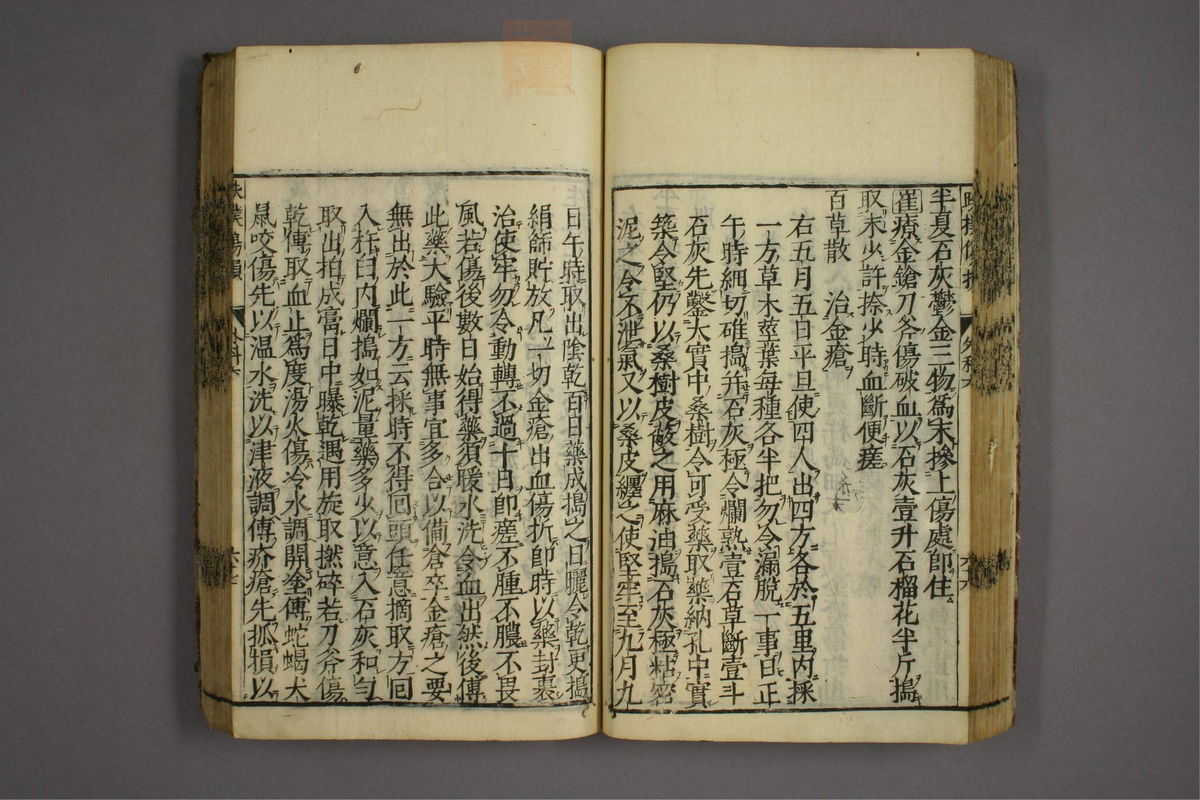 半夏石灰鬱金三物爲末摻上傷處即住
崔療金鎗刀斧傷破血以石灰壹升石榴花半斤搗
取末少許捺少時血斷便瘥
百草散　治金瘡
右五月五日平旦使四人出四方各於五里内採
一方草木莖葉每種各半把勿令漏脫一事日正
午時細切碓搗幷石灰極令爛熟壹石草斷壹斗
石灰先鑿大實中桑樹令可受藥取藥納孔中實
築令堅仍以桑樹皮蔽之用麻油搗石灰極粘密
泥之令不泄氣又以桑皮纏之使堅牢至九月九
日午時取出陰乾百日藥成搗之日曬令乾更搗
絹篩貯放凡一切金瘡出血傷折即時以藥封裹
治使牢勿令動轉不過十日即瘥不腫不膿不畏
風若傷後數日始得藥須暖水洗令血出然後傅
此藥大驗平時無事宜多合以備倉卒金瘡之要
無出於此一方云採時不得回頭任意摘取方回
入杵臼内爛搗如泥量藥多少以意入石灰和勻
取出拍成窩日中曝乾遇用旋取撚碎若刀斧傷
乾傅取血止爲度湯火傷冷水調開塗傅蛇蝎犬
鼠咬傷先以温水洗以津液調傅疥瘡先抓損以